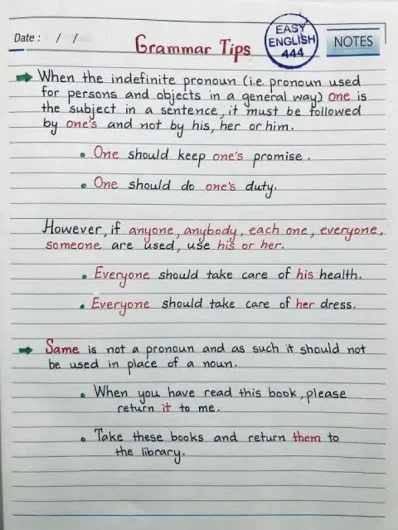 Date: / /
Grammar Tips
EASY
ENGLISH
444
NOTES
When the indefinite pronoun (i.e. pronoun used
for persons and objects in a general way) one is
the subject in a sentence, it must be followed
by one's and not by his, her or him.
• One should keep one's promise.
• One should do one's duty.
However, if anyone, anybody, each one, everyone,
someone are used, use his or her.
• Everyone should take care of his health.
• Everyone should take care of her dress.
Same is not a pronoun and as such it should not
be used in place of a noun.
• When you have read this book, please
return it to me.
• Take these books and return them to
the library.